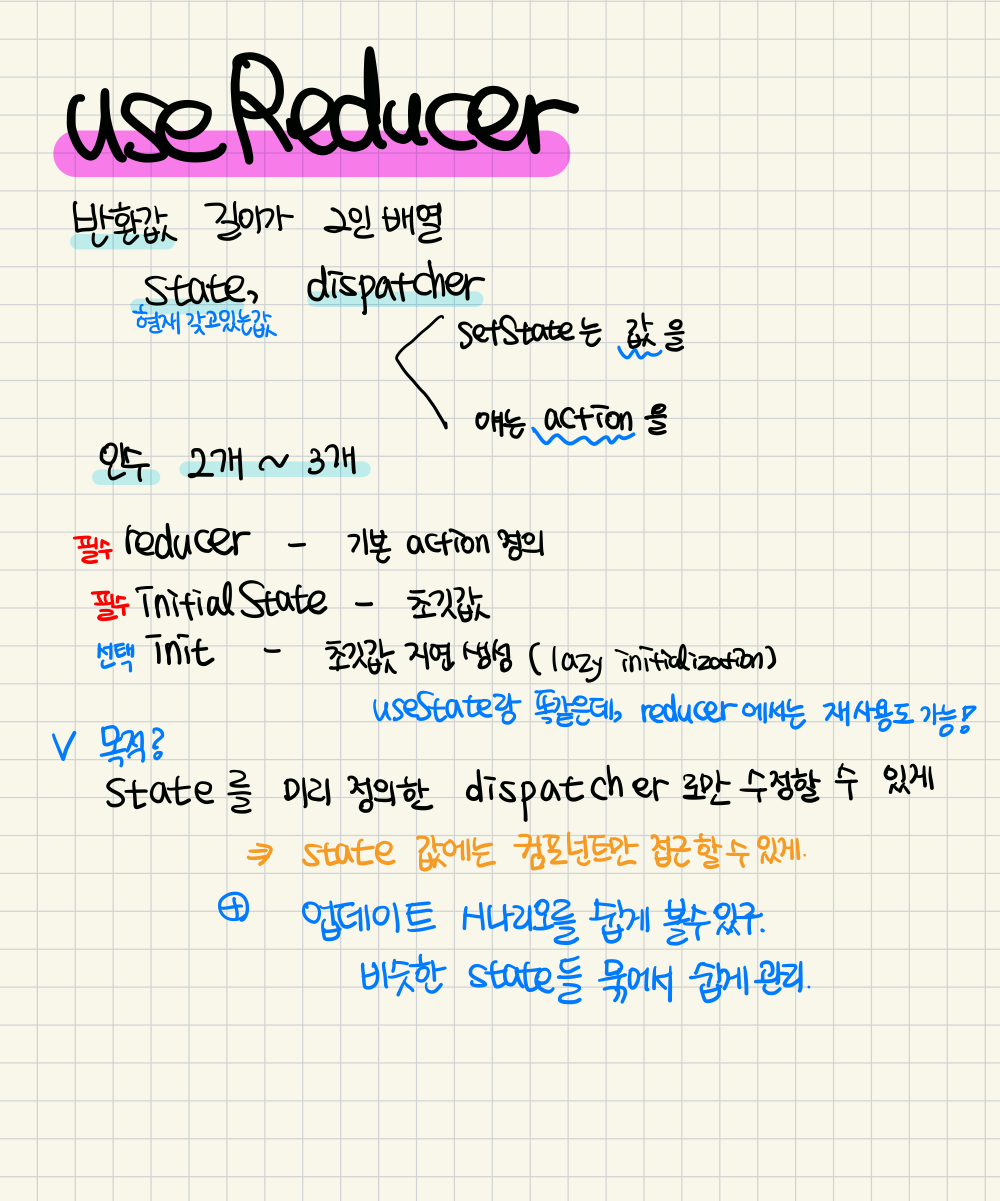 useReducer
반환값 길이가 2인 배열
state, dispatcher
현재 갖고있는값
setState는 값을
얘는 action을
인수 2개 ~ 3개
필수 reducer - 기본 action 정의
필수 initialState - 초깃값
선택 init - 초깃값 지연 생성 (lazy initialization)
useState랑 똑같은데, reducer에서는 재사용도 가능!
V 목적?
state를 미리 정의한 dispatcher로만 수정할 수 있게
⇒ state 값에는 컴포넌트만 접근할 수 있게.
⊕ 업데이트 시나리오를 쉽게 볼수있구.
비슷한 state들 묶어서 쉽게 관리.